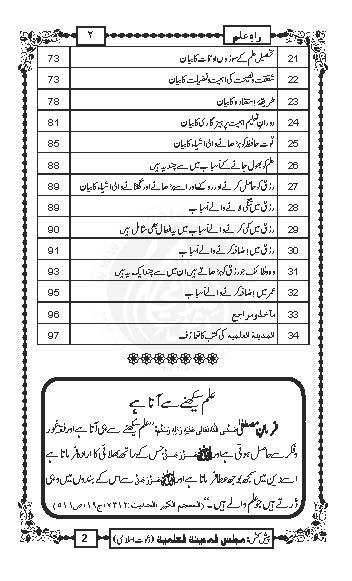 راہِ علم ۲
21 تحصیلِ علم کے موزوں اوقات کا بیان 73
22 شفقت و نصیحت کی اہمیت و فضیلت کا بیان 73
23 طریقۂ استفادہ کا بیان 78
24 دورانِ تعلیم اہمیتِ پرہیزگاری کا بیان 81
25 قوتِ حافظہ کو بڑھانے والی اشیاء کا بیان 85
26 علم کو بھول جانے کے اسباب میں سے چند یہ ہیں 88
27 رزق کو حاصل کرنے اور روکنے اور اسے بڑھانے اور گھٹانے والی اشیاء کا بیان 89
28 رزق میں تنگی لانے والے اسباب 89
29 رزق میں کمی کرنے والے اسباب میں یہ افعال بھی شامل ہیں 90
30 رزق میں اضافہ کرنے والے اسباب 91
31 وہ وظائف جو رزق کو بڑھاتے ہیں ان میں سے چند ایک یہ ہیں 93
32 عمر میں اضافہ کرنے والے اسباب 95
33 مآخذ و مراجع 96
34 المدینۃ العلمیہ کی کتب کا تعارف 97
علم سیکھنے سے آتا ہے
فرمانِ مصطفٰی صَلَّی اللہُ تَعَالٰی عَلَیْہِ وَاٰلِہٖ وَسَلَّم: ”علم سیکھنے سے ہی آتا ہے اور فقہ غور
و فکر سے حاصل ہوتی ہے اور اللہ عَزَّوَجَلَّ جس کے ساتھ بھلائی کا ارادہ فرماتا ہے
اسے دین میں سمجھ بوجھ عطا فرماتا ہے اور اللہ عَزَّوَجَلَّ سے اس کے بندوں میں وہی
ڈرتے ہیں جو علم والے ہیں۔“ (المعجم الکبیر، الحدیث:۷۳۱۲، ج۱۹، ص۵۱۱)
پیش کش: مجلس المدینۃ العلمیۃ (دعوتِ اسلامی) 2